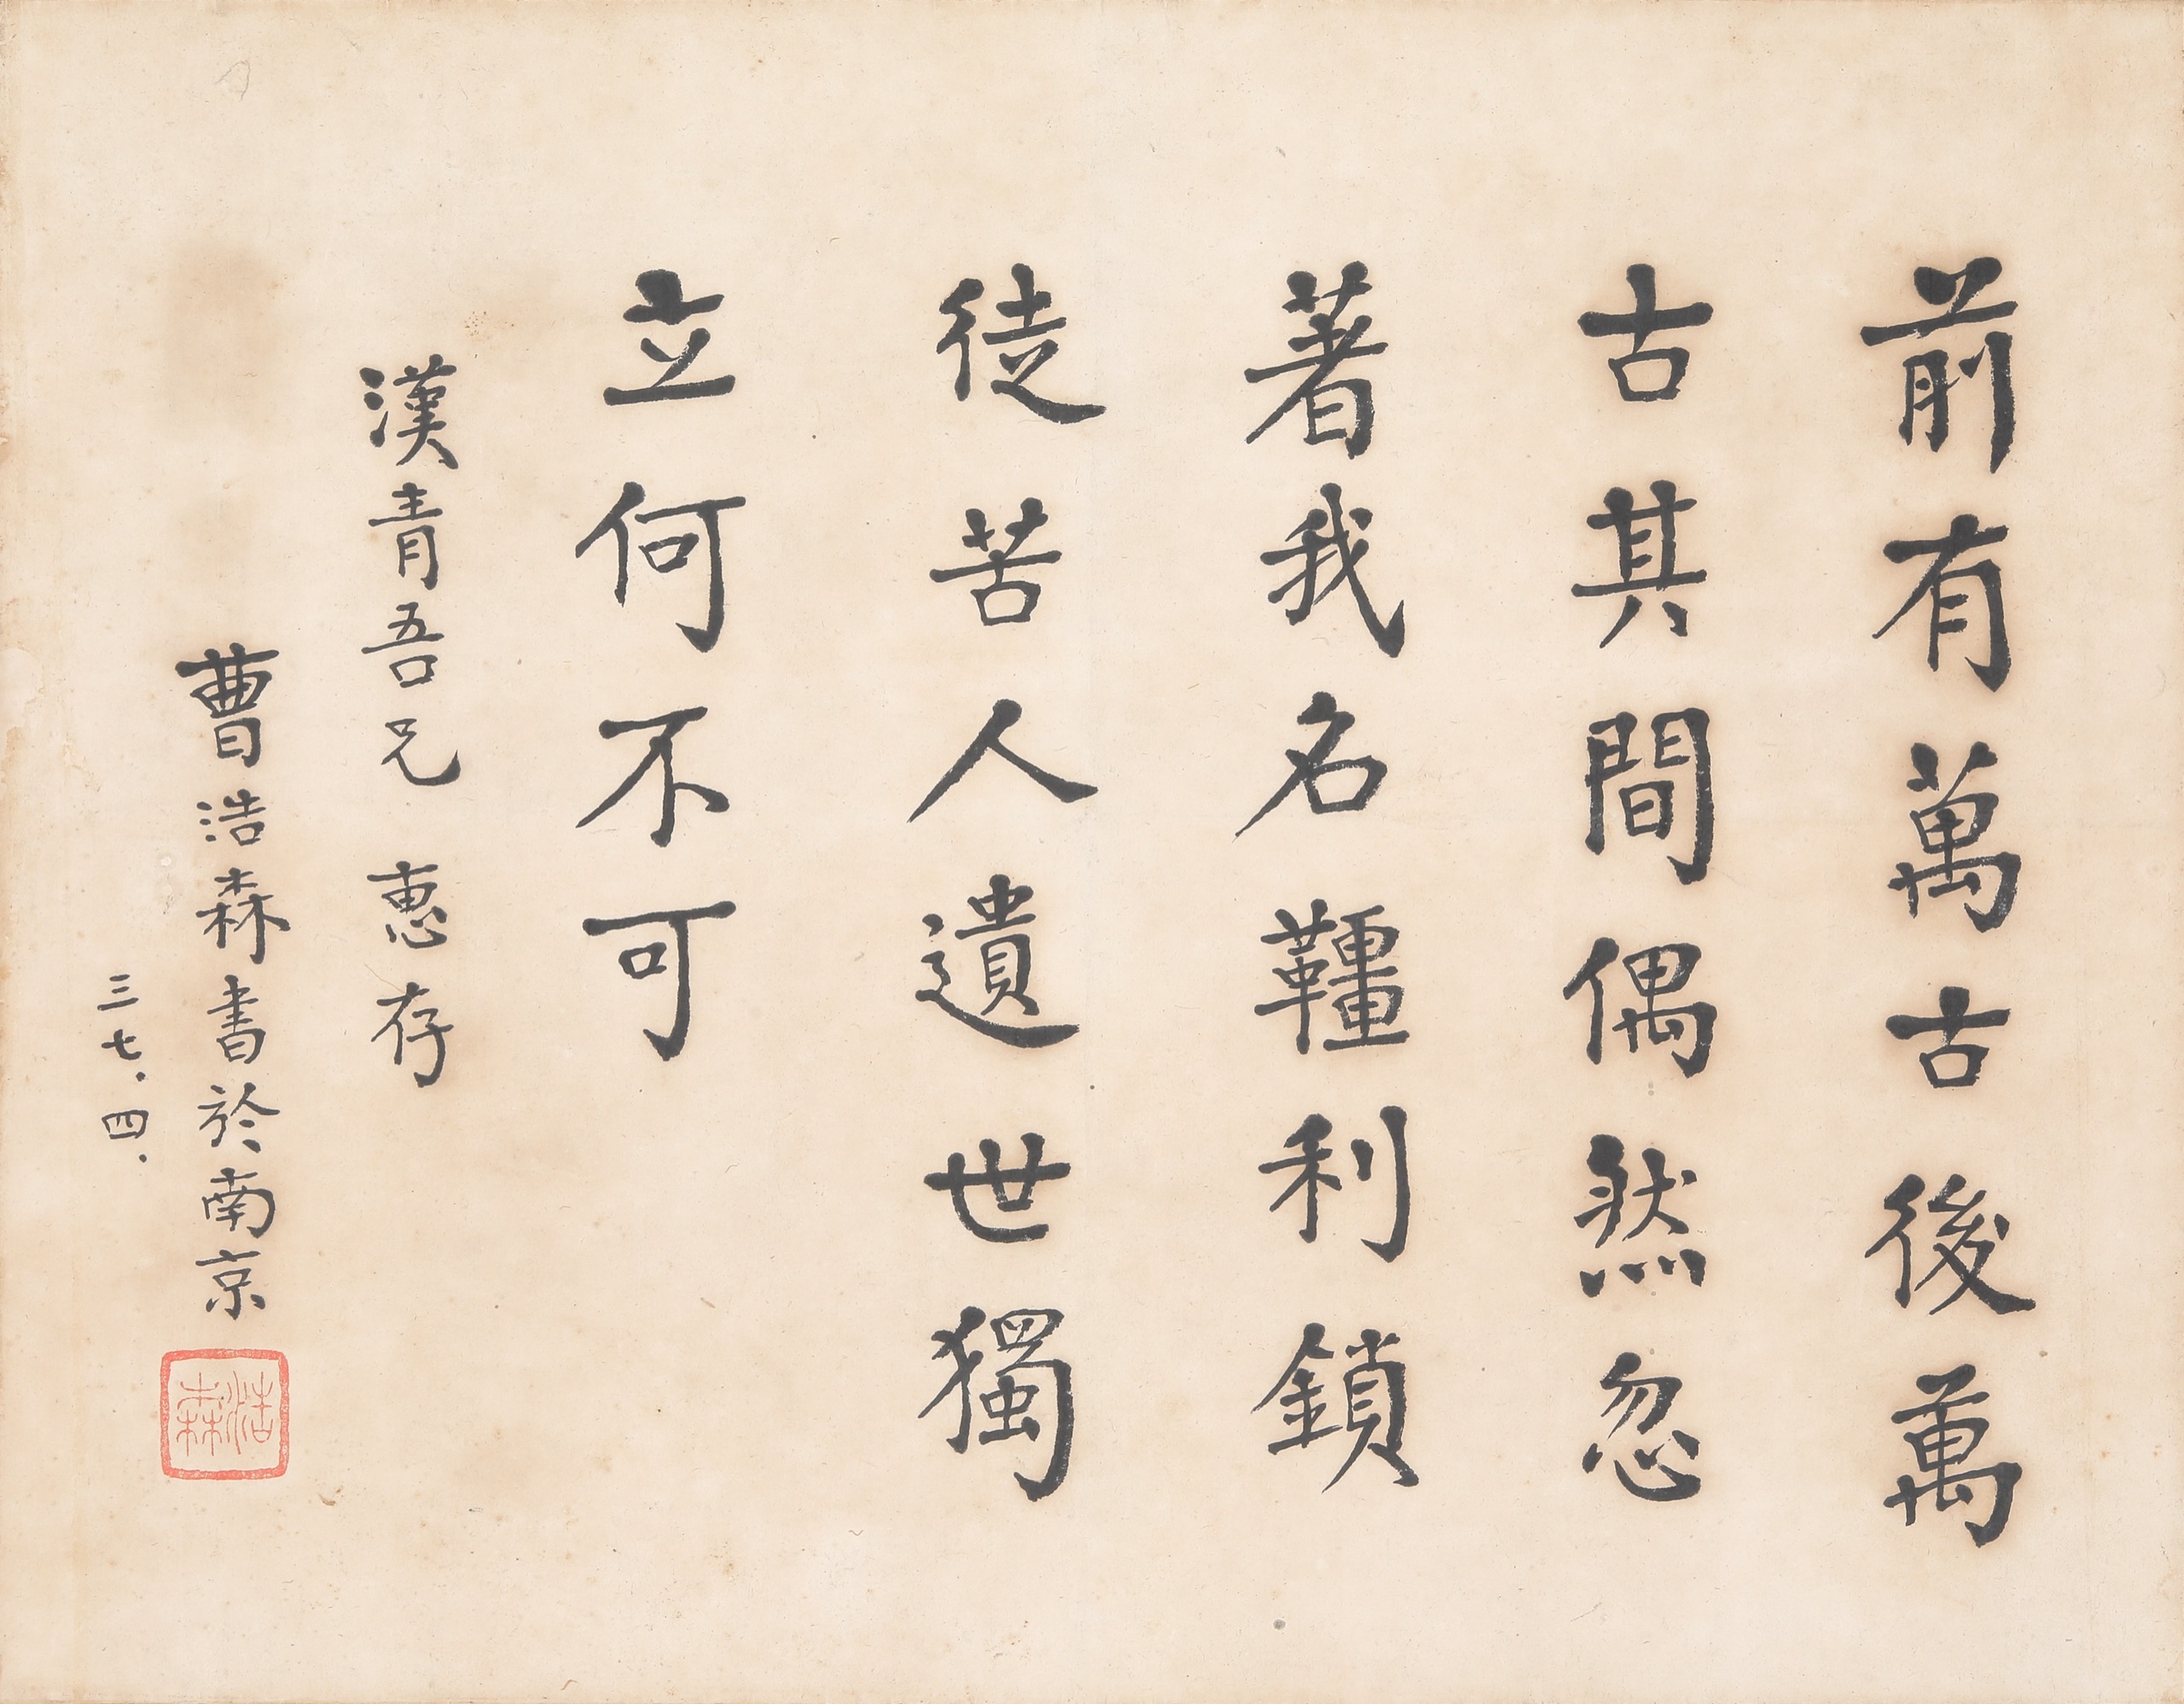 前有萬古後萬
古其間偶然忽
著我名韁利鎖
徒苦人遺世獨
立何不可
漢青吾兄 惠存
曹浩森書於南京
三七.四.
浩森